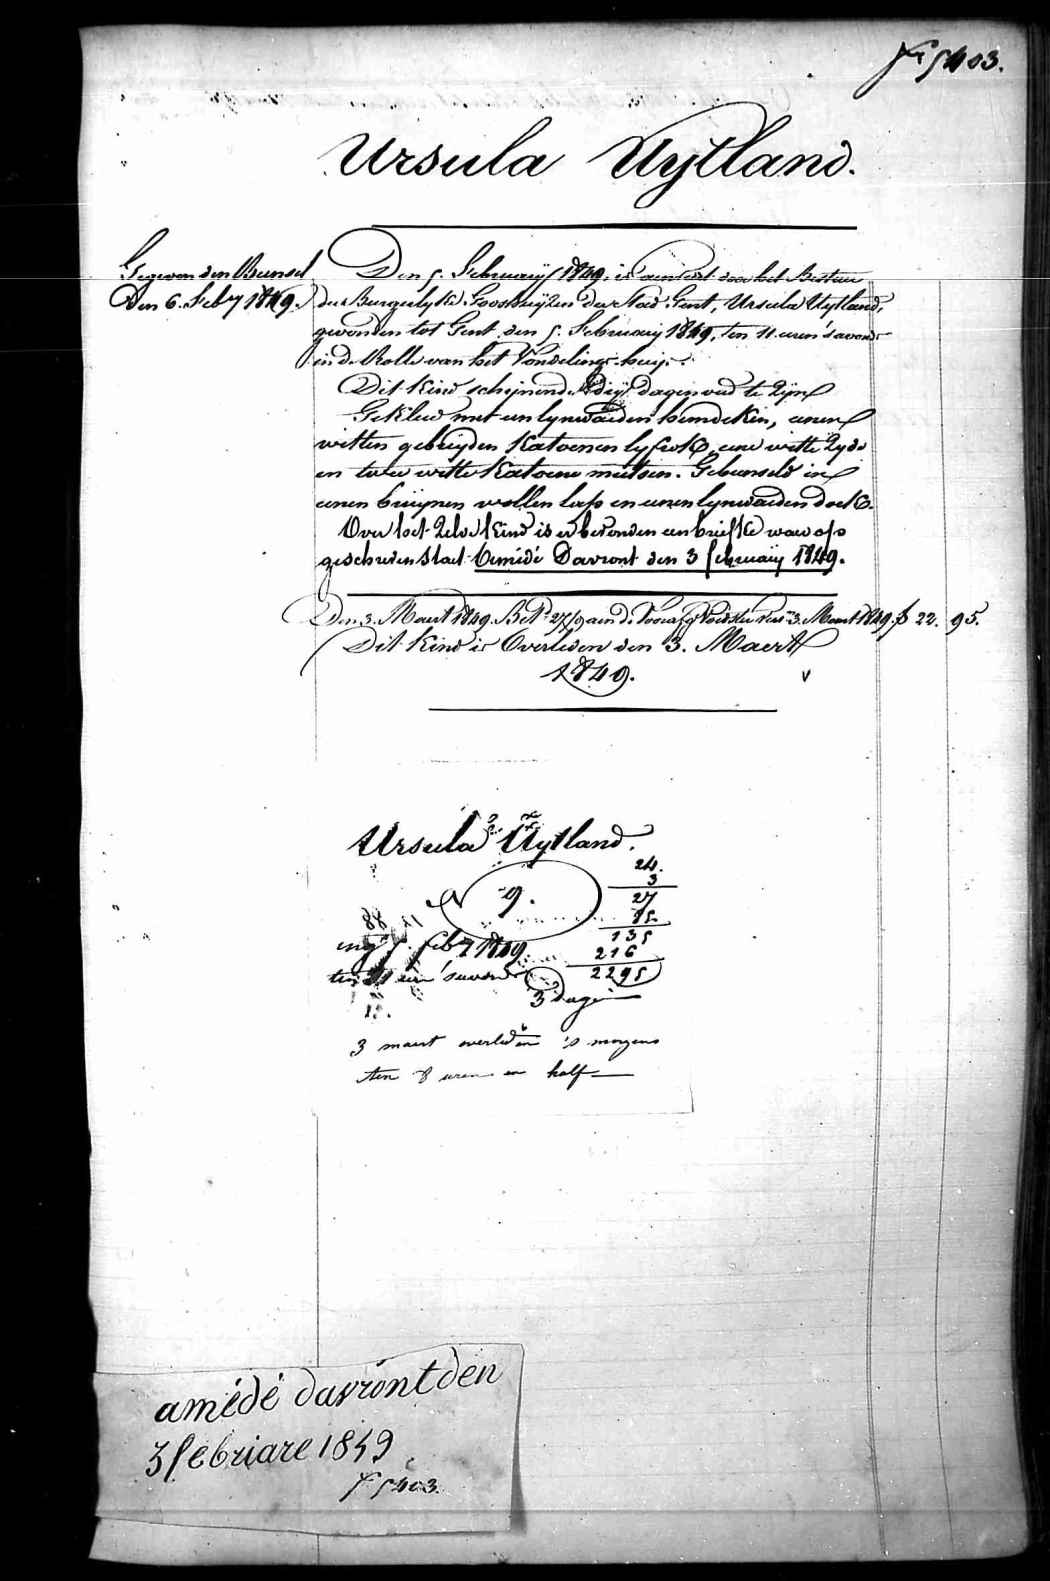 f° 5403.
Ursula Uytland.
Gegeven den Bunsel
Den 6. Feb.y 1849.
Den 5. February 1849. is aenveert door het Bestuer
der Burgerlyke Godshuyzen der Stad Gent, Ursula Uytland,
gevonden tot Gent den 5. February 1849, ten 11 uren 's avonds
in de Rolle van het Vondelings-huys.
Dit Kind schynende dry dagen oud te zyn
Gekleed met een lynwaeden hemdeken, eenen
witten gebreyden Katoenen lyfrok, eene witte Zyde
en twee witte Katoene mutsen. Gebunseld in
eenen bruynen wollen lap en eenen lynwaeden doek.
Over het zelve Kind is er bevonden een briefke waer op
geschreven staet Amédé Davront den 3 februarij 1849.
Den 3. Maert 1849. Bet. 27/9 aen de Voedster 3. Maert 1849. f 22. 95.
Dit Kind is Overleden den 3. Maert
1849.
Ursula Uytland.
9.
24.
3
27
85
135
216
2295
5. feb.y 1849
ten 11 uren 's avonds
3 dagen
3 maert overleden 's morgens
ten 8 uren en half
amédé davront den
3 febriare 1849
f° 5403.